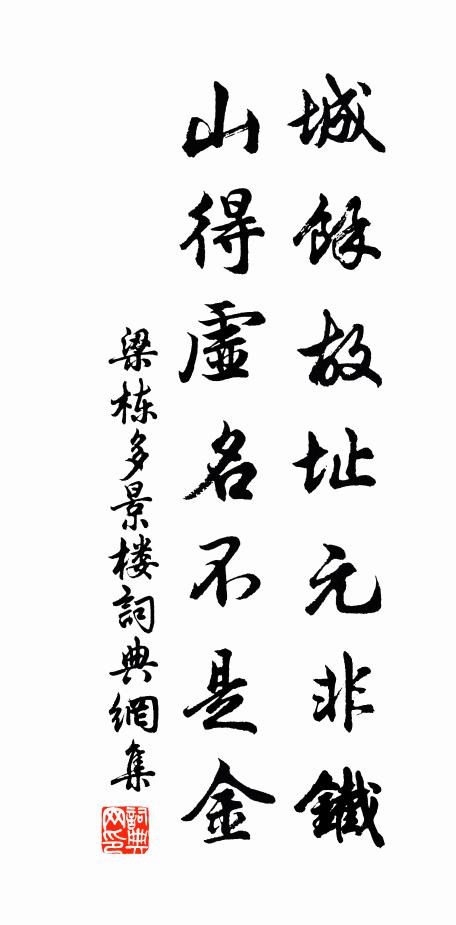 城餘故址元非鐵
山得虛名不是金
梁栋多景楼詞典網集
詞典
网印